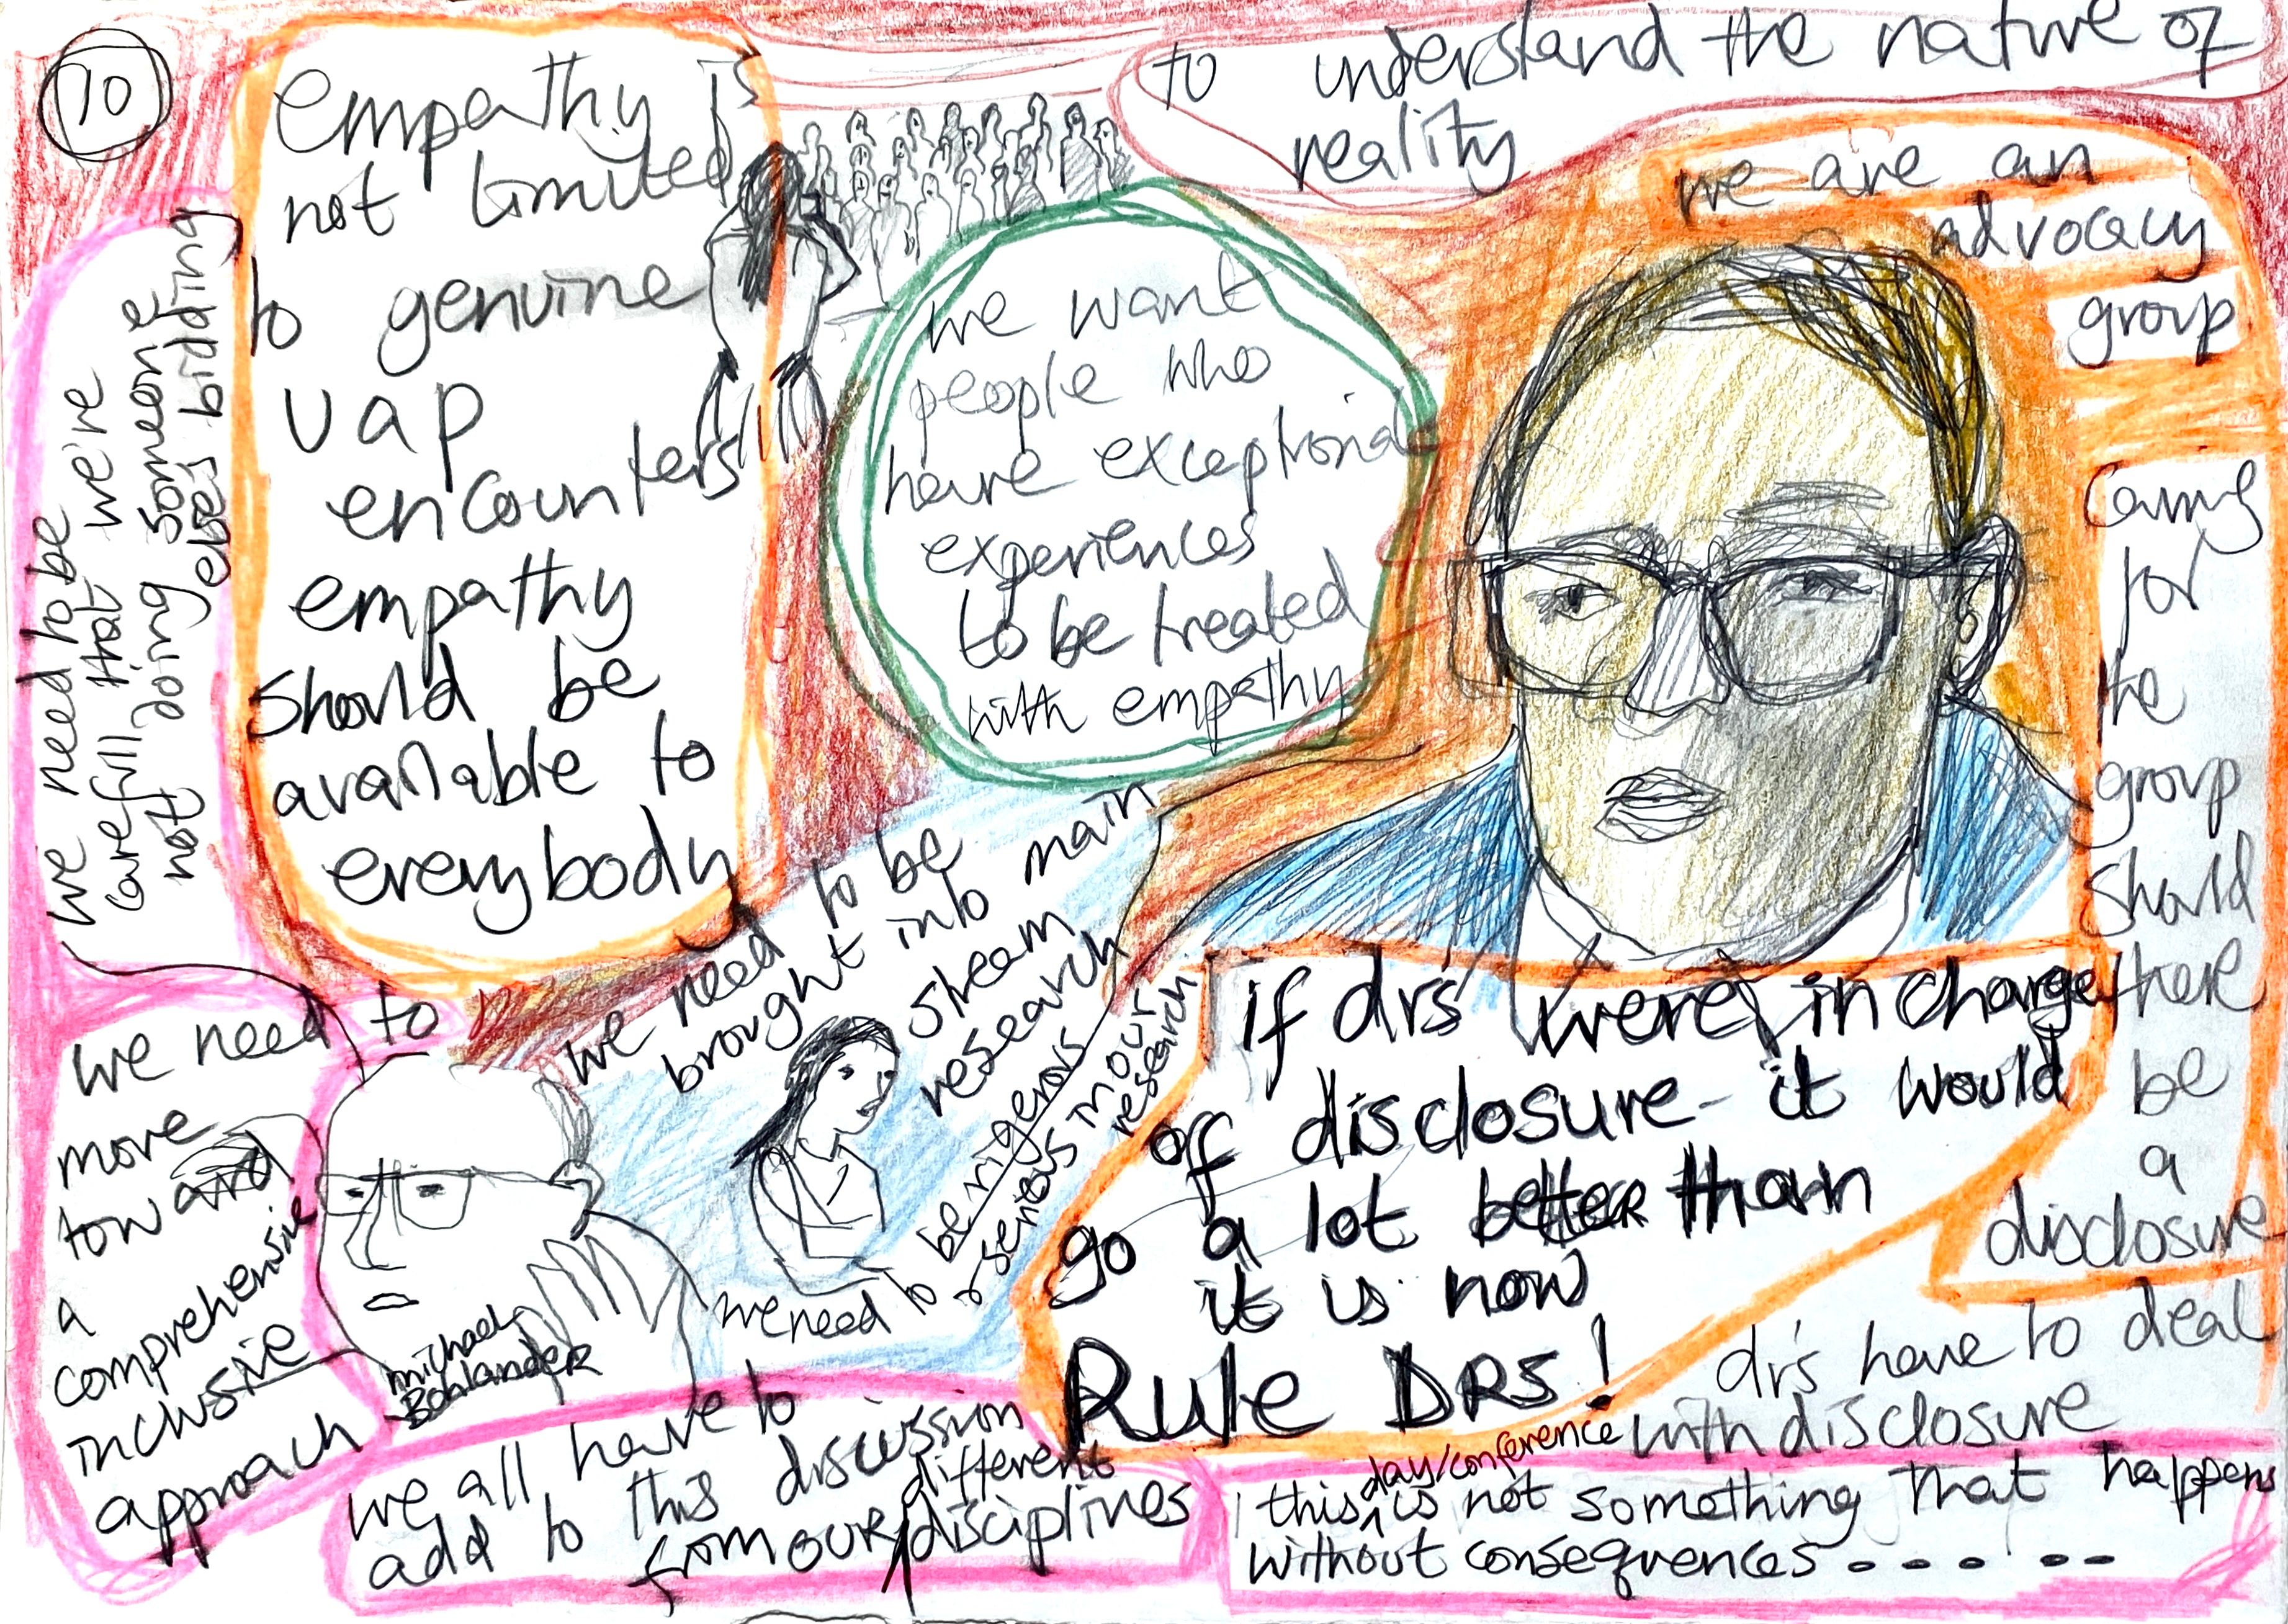 10
empathy is
not limited
to genuine
uap
encounters
empathy
should be
available to
everybody
to understand the nature of
reality
we are an
advocacy
group
caring
for
the
group
should
there
be
a
disclosure
we want
people who
have exceptional
experiences
to be treated
with empathy
we need to be
carefull that we're
not doing someone
else's bidding
we need to be
brought into main
stream
research
we need to
be rigerous
& serious in our
research
we need to
move
toward
a
comprehensive
inclusive
approach
michael
Bohlander
if drs were in charge
of disclosure - it would
go a lot better than
it is now
Rule DRS!
drs have to deal
with disclosure
we all have to
add to this discussion
from our different
disciplines
this day/conference is not something that happens
without consequences - - - - -